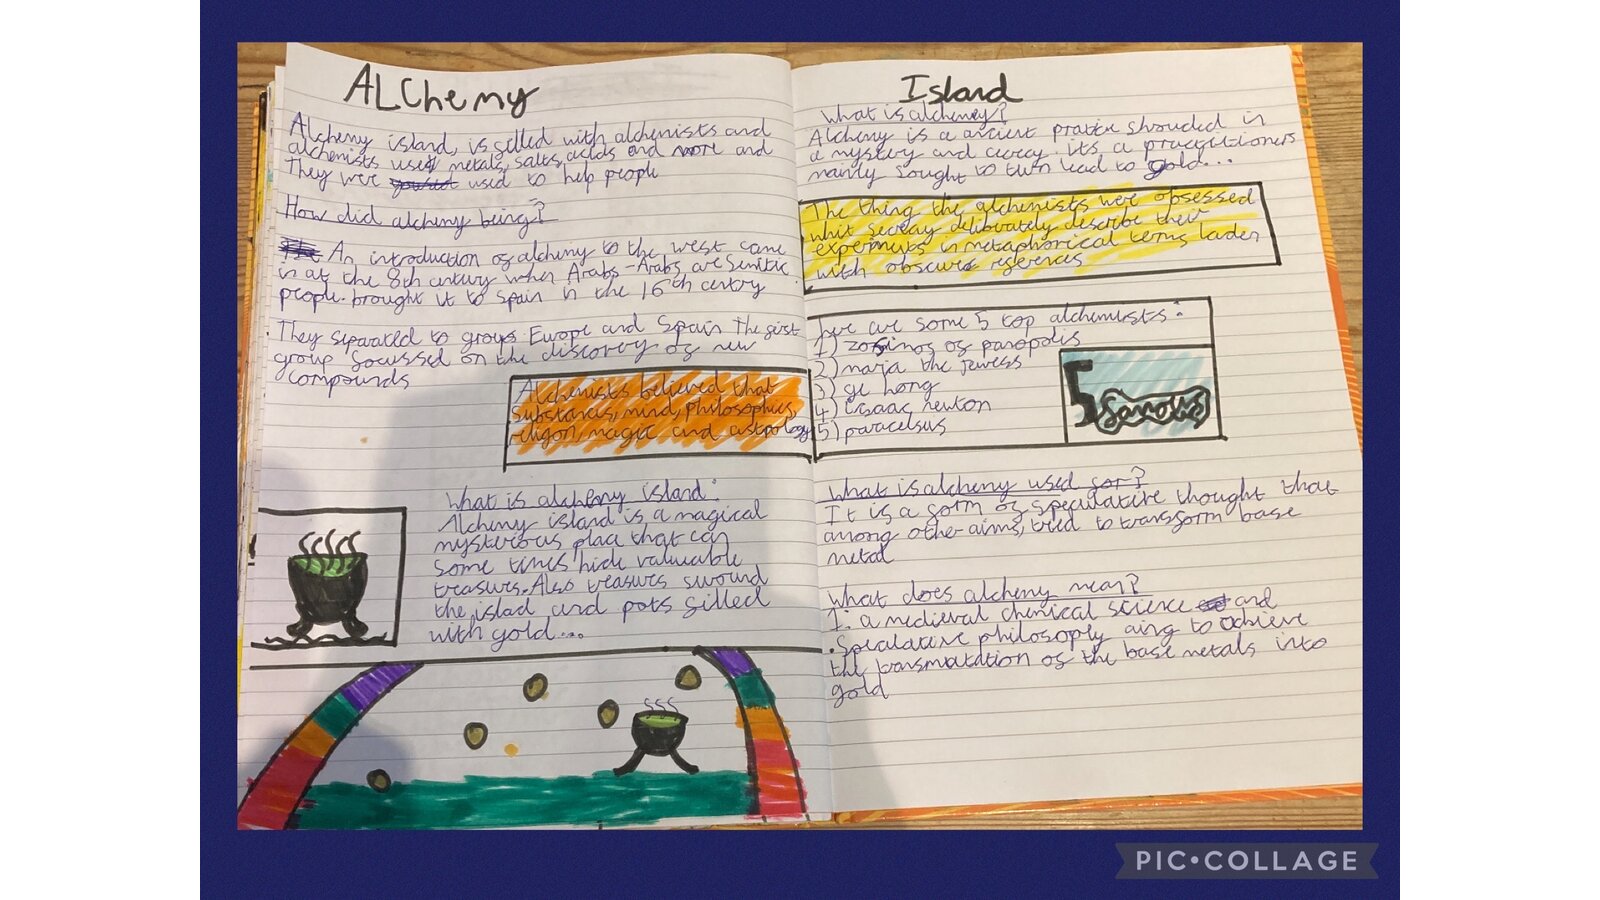 ALChemy
Alchemy island, is filled with alchemists and
alchemists used metals, salts, acids and more and
They were used to help people
How did alchemy being?
An introduction of alchemy to the west came
in at the 8th century when Arabs - Arabs are Semitic
people. brought it to Spain in the 16th centry
They separated to groups Europe and Spain The first
group focussed on the discovery of new
compounds
Alchemists believed that
Substances, mind, philosophies,
religon, magic and astrology
What is alchemy island:
Alchemy island is a magical
mysterious place that can
some times hide valuable
treasures. Also treasures swound
the islad and pots filled
with gold...
Island
What is alchemey?
Alchemy is a ancient pratice shrouded in
a mystery and its a practitioners
mainly sought to turn lead to gold...
The thing the alchemists were obsessed
whit secrecy deliberately describe their
experiments in metaphorical terms laden
with obscure references
here are some 5 top alchemists:
1) zosinos of panopolis
2) maria the jewess
3) ge hong
4) isaac newton
5) paracelsus
5 famous
What is alchemy used for?
It is a form of speculative thought that
among other aims, tried to transform base
metal
What does alchemy mean?
1. a medieval chemical science and
• Speculative philosophy aing to achieve
the transmutation of the base metals into
gold
PIC•COLLAGE